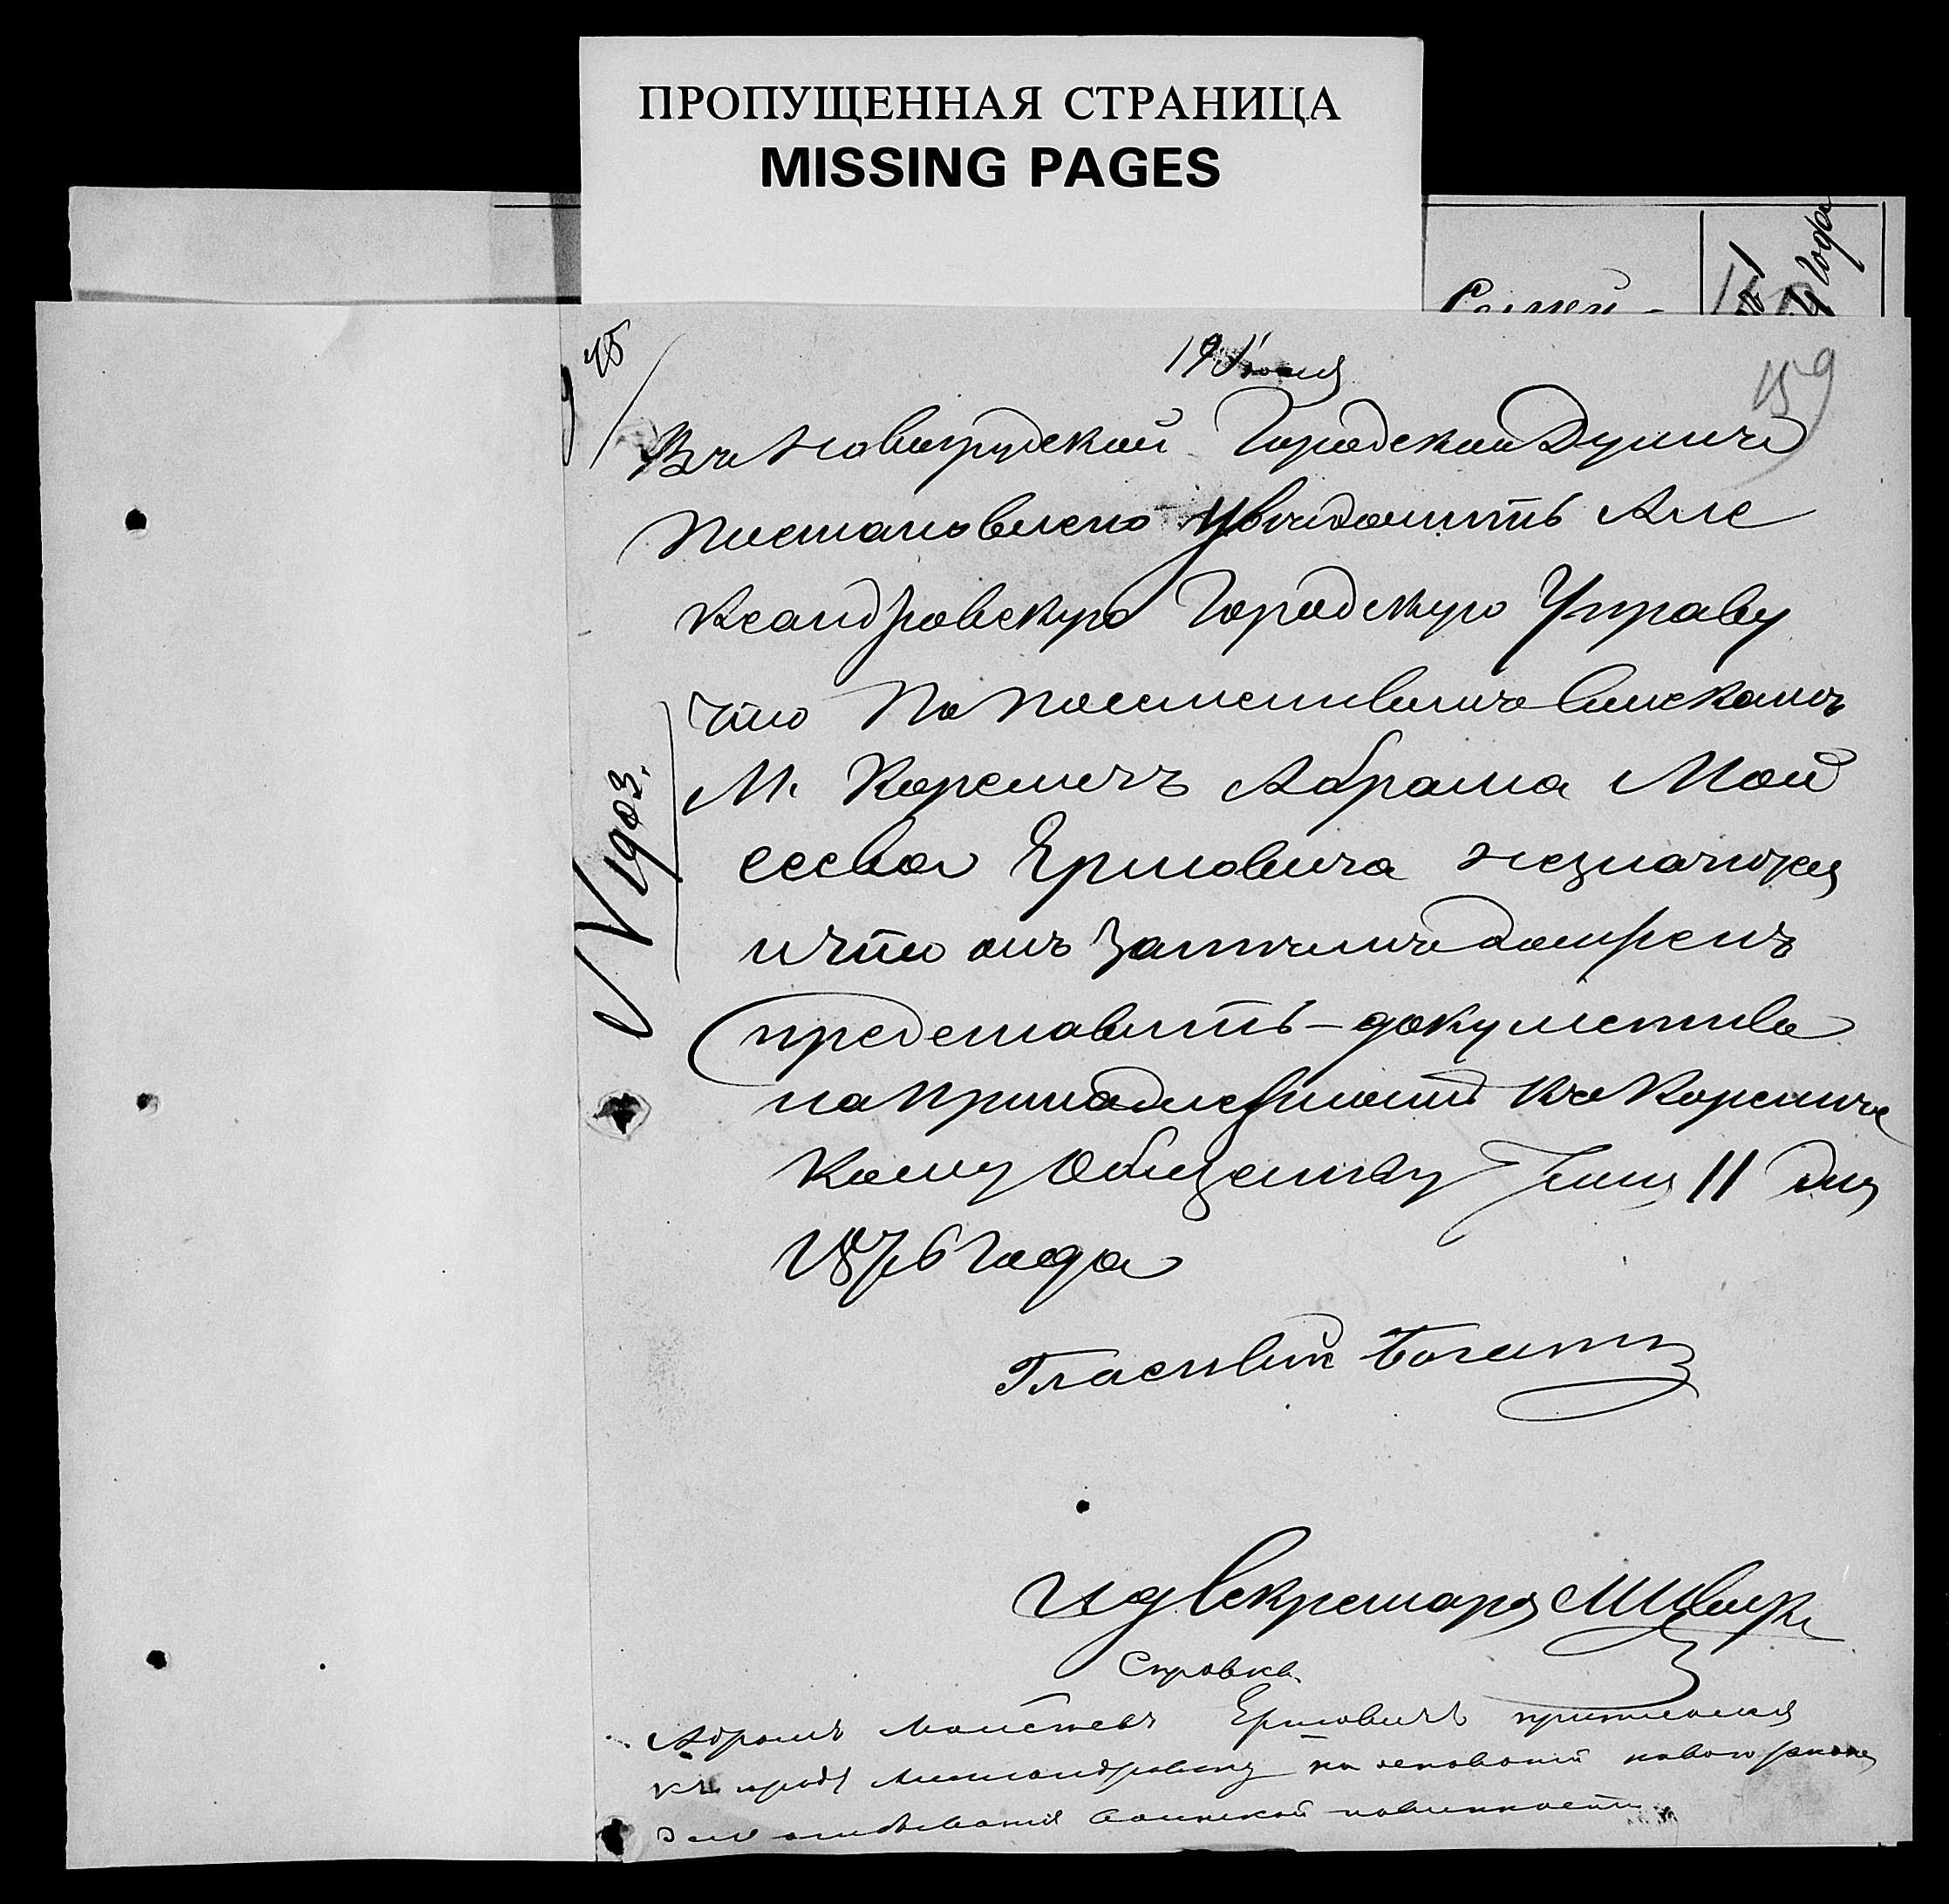 ПРОПУЩЕННАЯ СТРАНИЦА
MISSING PAGES
года
159
19 Июня
Въ Новогрудской Городской Думѣ
постановлено увѣдомить Але
ксандровскую Городскую Управу
что по посемейнымъ спискамъ
М. Кореличъ Абрама Мой
сеева Ермовича незначится
и что онъ затѣмъ долженъ
представить документы
на принадлежность къ Корелич
кому Обществу Іюня 11 дня
1876 года
N 1903.
Гласный
И д Секретаря
Справка
Абрамъ Моисеевъ Ермовичъ приписался
къ городу Александровску на основаніи новаго закона
для отбыванія воинской повинности